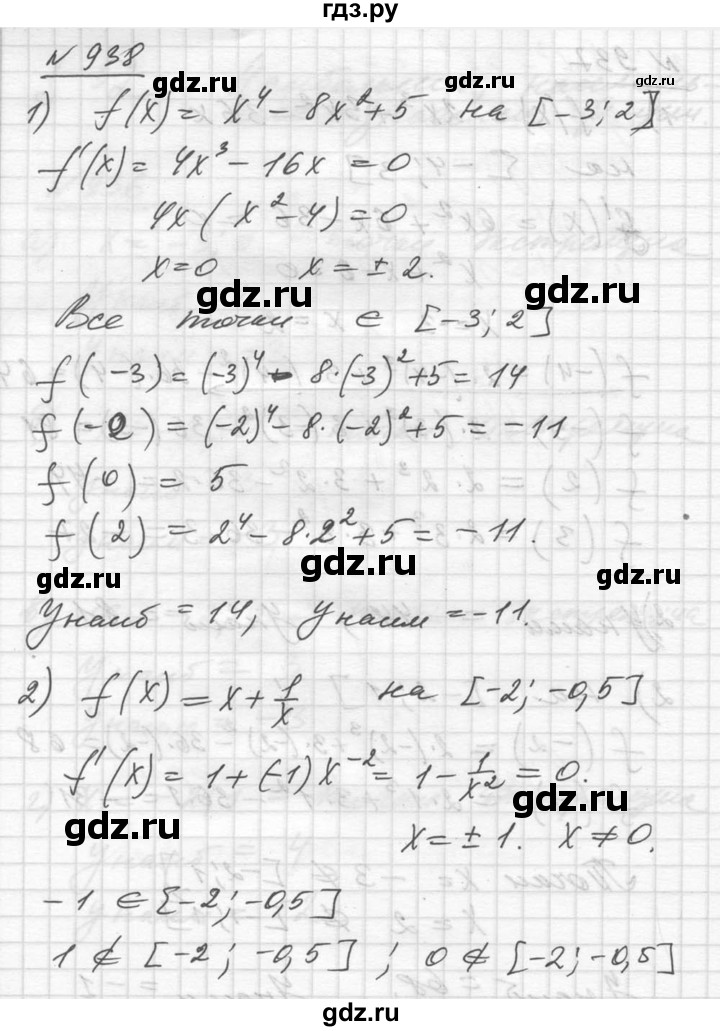 гдз.ру
№ 938
gdz.ru gdz.ru
1) f(x) = x⁴ - 8x² + 5 на [-3; 2]
f'(x) = 4x³ - 16x = 0
4x(x² - 4) = 0
x = 0 x = ± 2.
gdz.ru gdz.ru
Все точки ∈ [-3; 2]
f(-3) = (-3)⁴ - 8·(-3)² + 5 = 14
f(-2) = (-2)⁴ - 8·(-2)² + 5 = -11
gdz.ru gdz.ru
f(0) = 5
f(2) = 2⁴ - 8·2² + 5 = -11.
gdz.ru gdz.ru gdz.ru
Унаиб = 14, Унаим = -11.
2) f(x) = x + 1/x на [-2; -0,5]
f'(x) = 1 + (-1)x⁻² = 1 - 1/x² = 0.
gdz.ru gdz.ru
x = ± 1. x ≠ 0.
-1 ∈ [-2; -0,5]
1 ∉ [-2; -0,5]; 0 ∉ [-2; -0,5]
gdz.ru